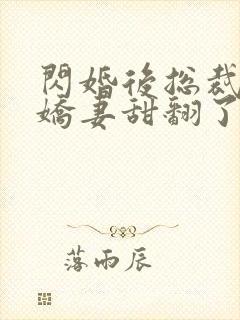 閃婚後總裁
嬌妻甜翻了
落雨辰